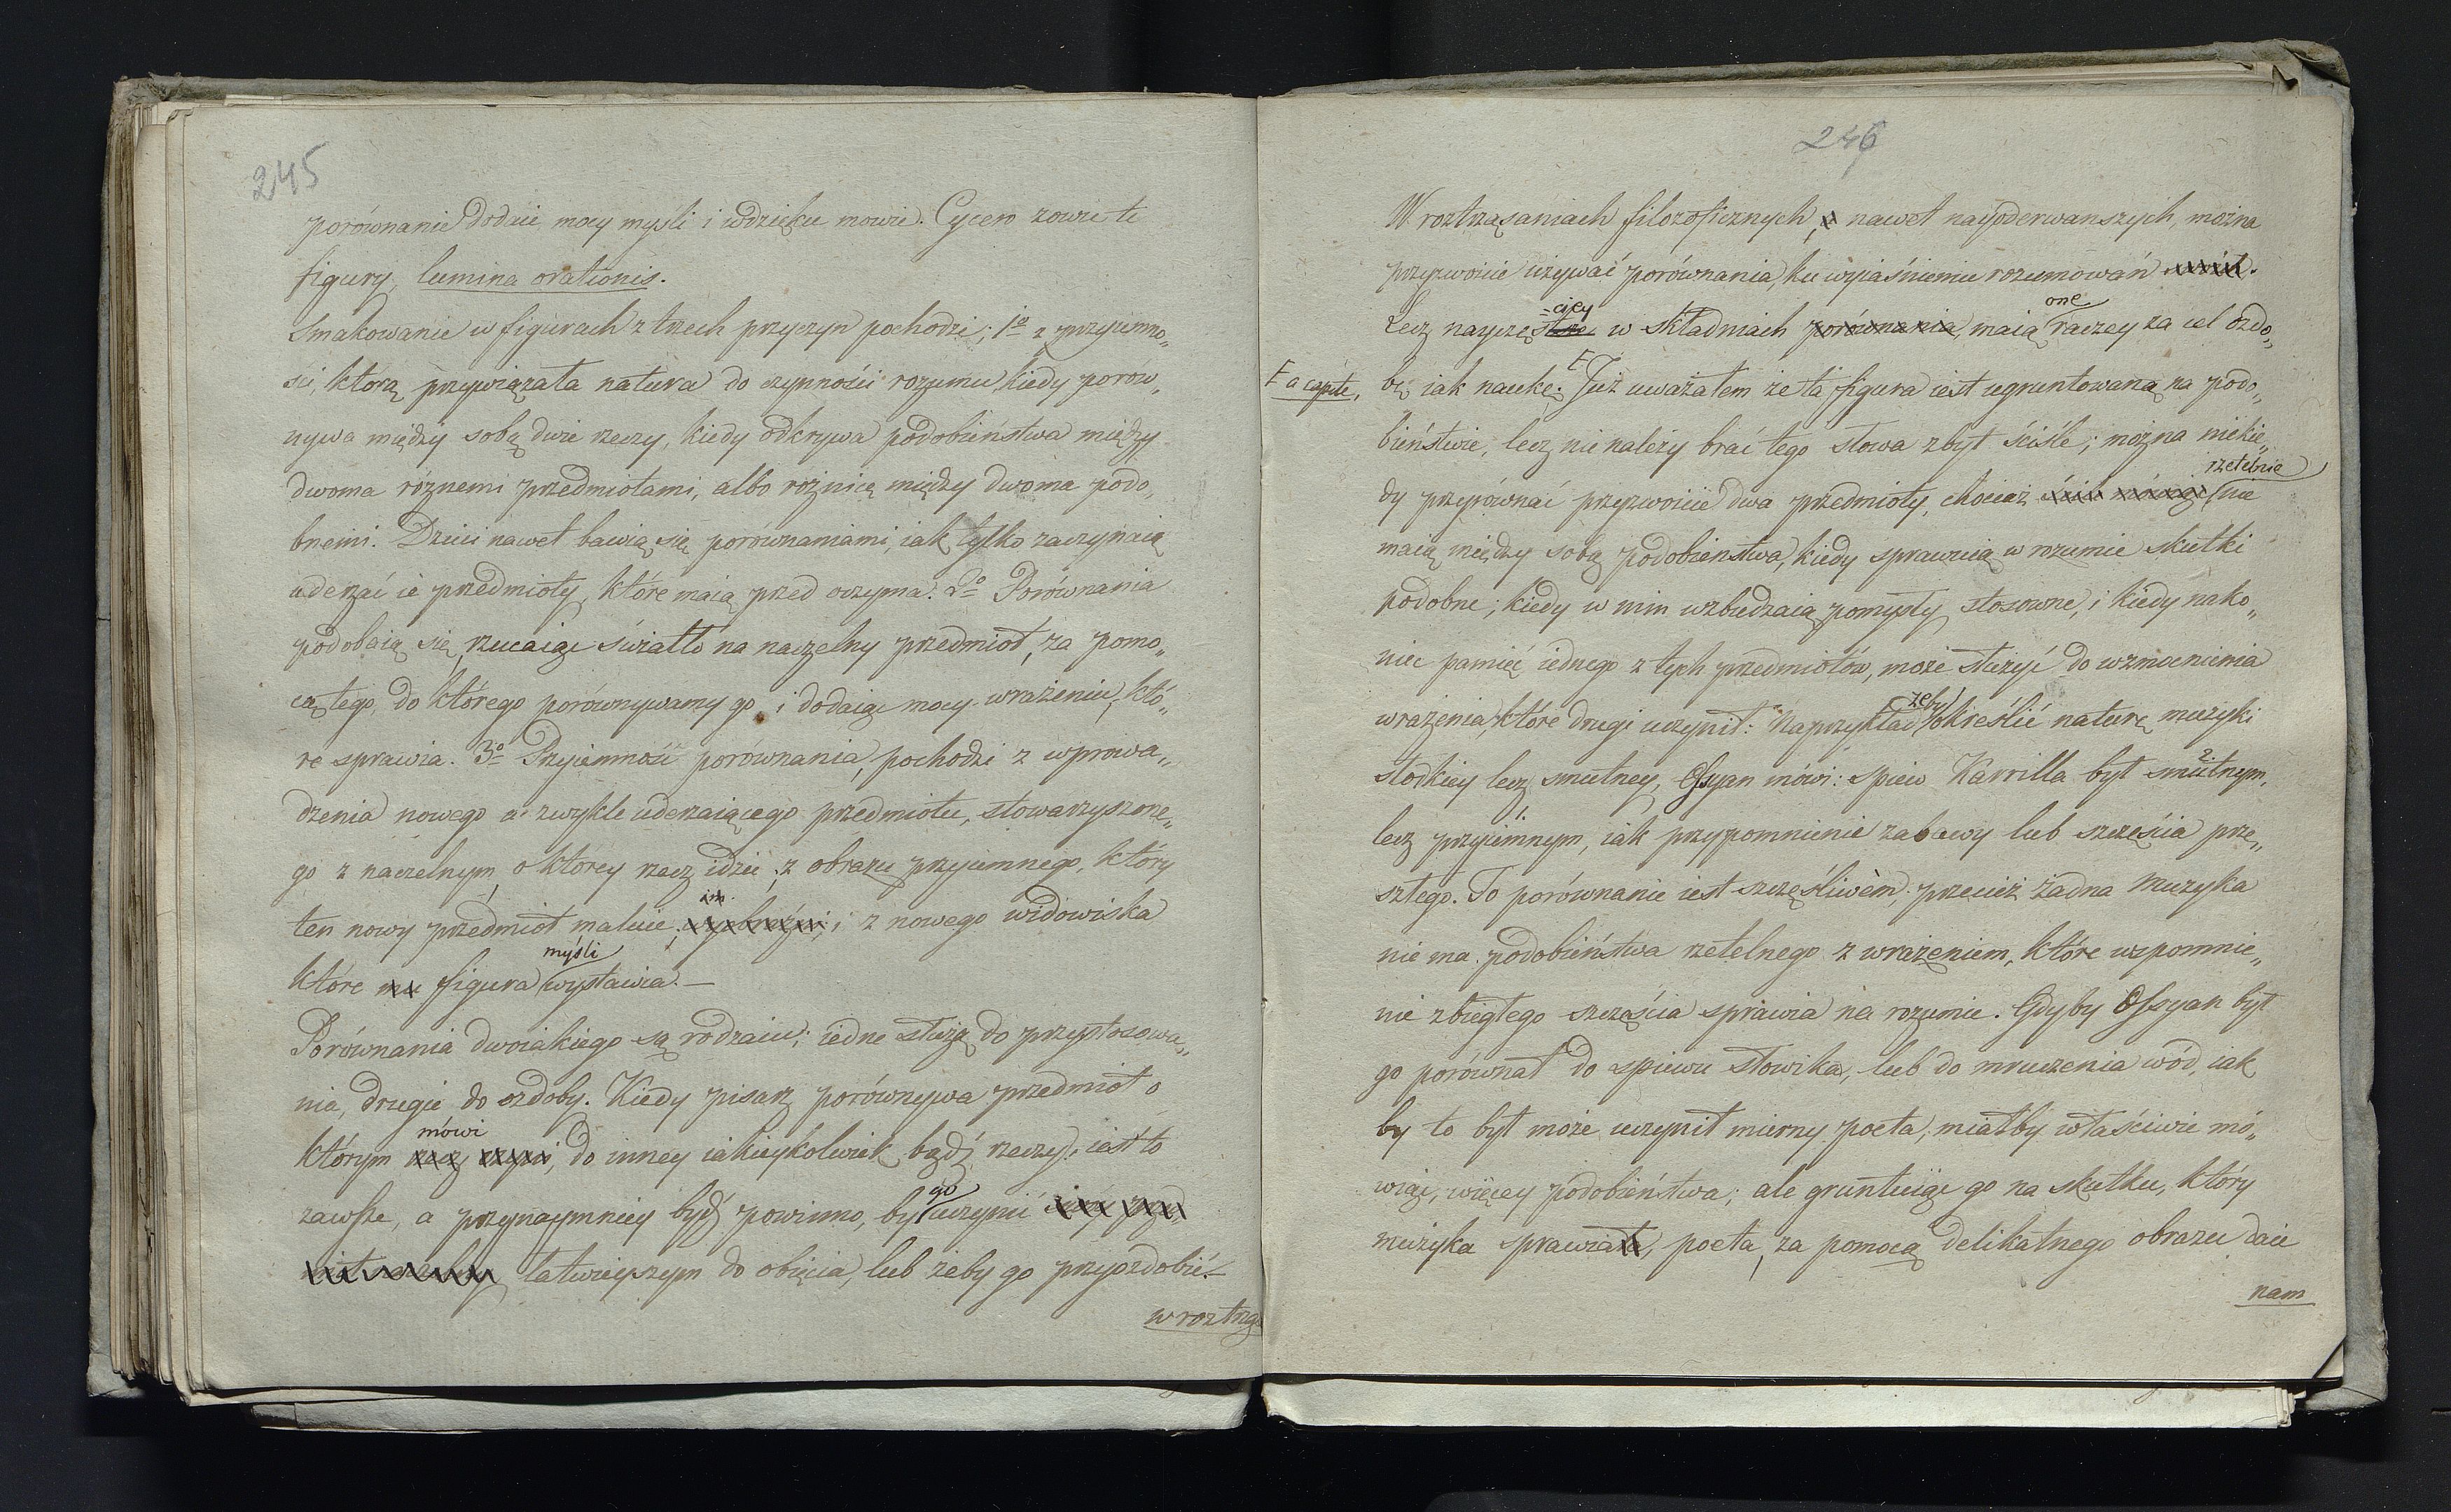 245
porównanie dodaie mocy myśli i wdzięku mowie. Cycero zowie te
figury, lumina orationis.
Smakowanie w figurach z trzech przyczyn pochodzi; 1o z przyiemno„
ści, którą przywiązała natura do czynności rozumu, kiedy porów„
nywa między sobą dwie rzeczy, kiedy odkrywa podobieństwa między
dwoma róznemi przedmiotami, albo róznicę między dwoma podo„
bnemi. Dzieci nawet bawią się porównaniami, iak tylko zaczynaią
uderzać ie przedmioty, które maią przed oczyma. 2o Porównania
podobaią się, rzucaiąc światło na naczelny przedmiot, za pomo„
cą tego, do którego porównywamy go, i dodaiąc mocy wrażeniu, któ„
re sprawia. 3o Przyiemność porównania, pochodzi z wprowa„
dzenia nowego a zwykle uderzaiącego przedmiotu, stowarzyszone„
go z naczelnym, o którey rzecz idzie; z obrazu przyiemnego, który
ten nowy przedmiot maluie; i z nowego widowiska
które figura myśli wystawia. —
Porównania dwoiakiego są rodzaiu; iedne służą do przystosowa„
nia, drugie do ozdoby. Kiedy pisarz porównywa przedmiot o
którym mówi, do inney iakieykolwiek bądź rzeczy, iest to
zawsze, a przynaymniey bydź powinno, by go uczynić
łatwieyszym do obięcia, lub żeby go przyozdobić. —
w roztrzą
246
W roztrząsaniach filozoficznych, nawet nayoderwanszych, można
przyzwoicie używać porównania, ku wyiaśnieniu rozumowań.
Lecz nayczęściey w składniach porównania, maią one raczey za cel ozdo„
F a capite, bę iak naukę. F Już uważałem że ta figura iest ugruntowaną na podo„
bieństwie, lecz nie należy brać tego słowa zbyt ściśle; można niekie„
dy przyrównać przyzwoicie dwa przedmioty, chociaż rzetelnie nie
maią między sobą podobieństwa, kiedy sprawuią w rozumie skutki
podobne; kiedy w nim wzbudzaią pomysły stosowne, i kiedy nako„
niec pamięć iednego z tych przedmiotów, może służyć do wzmocnienia
wrażenia, które drugi uczynił: Naprzykład żeby określić naturę muzyki
słodkiey lecz smutney, Ossyan mówi: spiew Karrilla był smutnym, 2
lecz przyiemnym, 1. iak przypomnienie zabawy lub szczęścia prze„
szłego. To porównanie iest szczęśliwèm; przecież żadna muzyka
nie ma podobieństwa rzetelnego z wrażeniem, które wspomnie„
nie zbiegłego szczęścia sprawia na rozumie. Gdyby Ossyan był
go porównał do spiewu słowika, lub do mruczenia wód, iak
by to był może uczynił mierny poeta, miałby właściwie mó„
wiąc, więcey podobieństwa; ale gruntuiąc go na skutku, który
muzyka sprawia, poeta, za pomocą delikatnego obrazu daie
nam